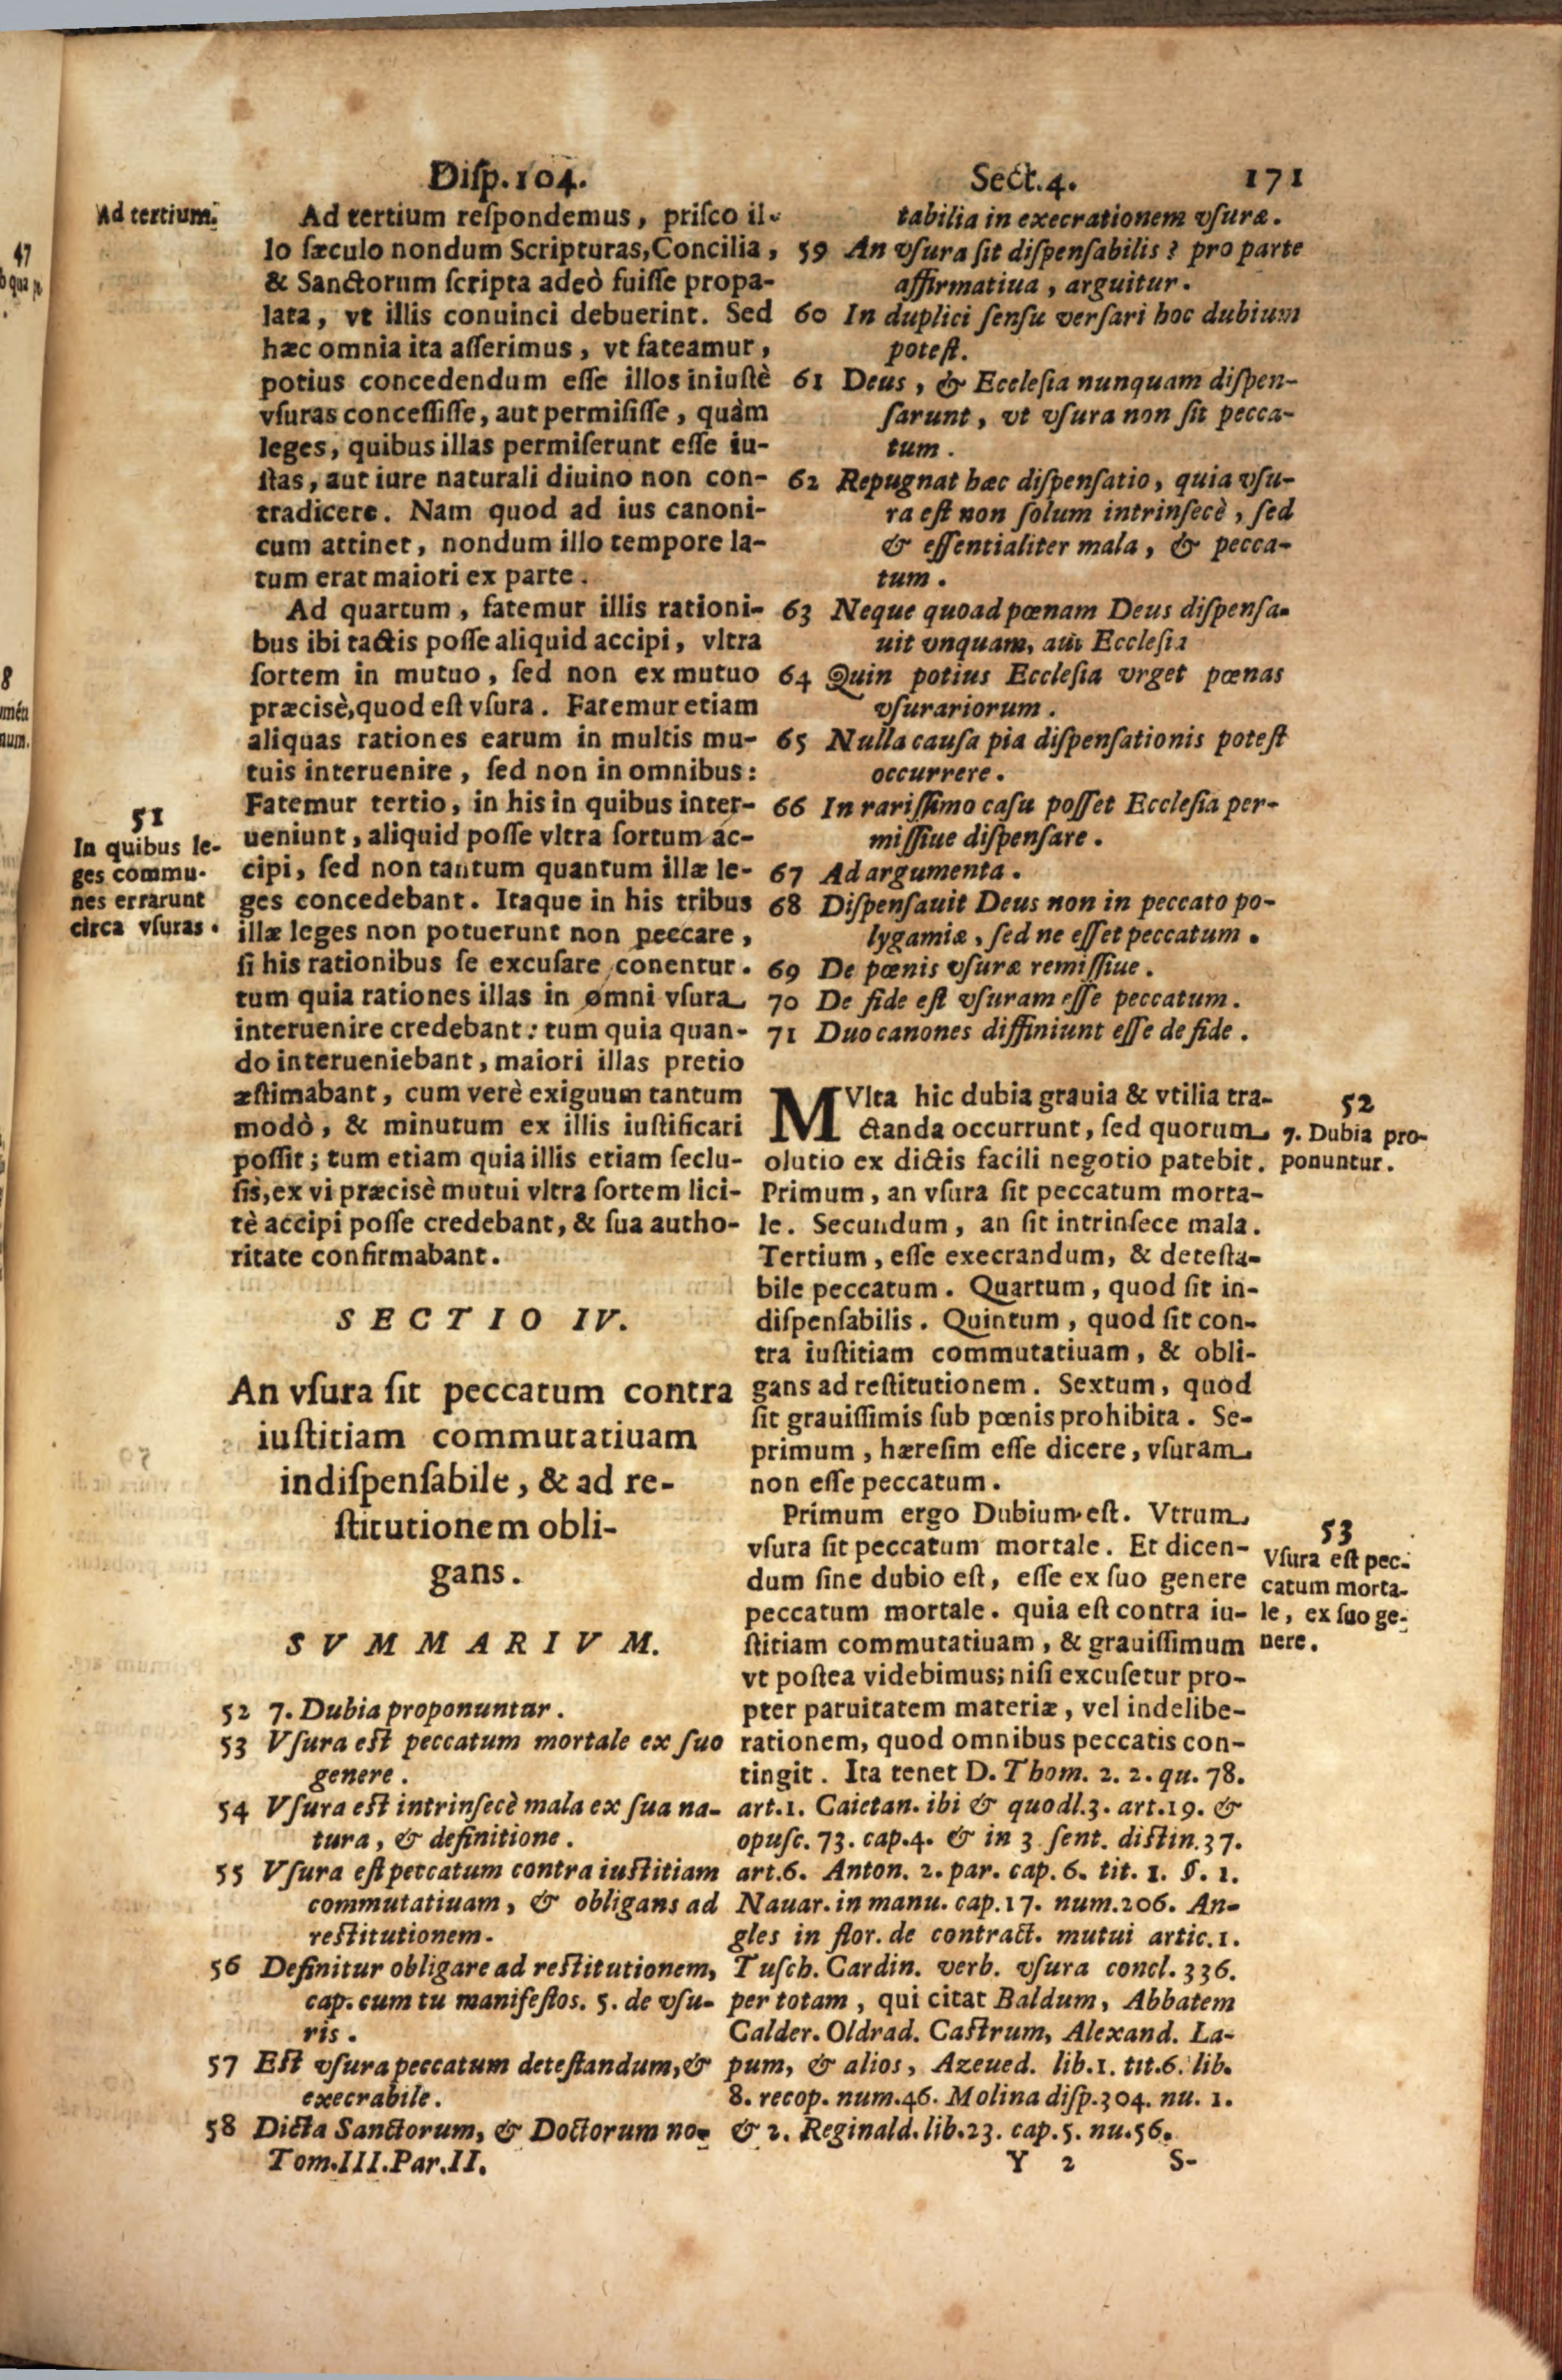 Disp.104.
Sect.4.
171
Ad tertium.
Ad tertium respondemus, prisco il-
lo sæculo nondum Scripturas, Concilia,
& Sanctorum scripta adeò fuisse propa-
lata, vt illis conuinci debuerint. Sed
hæc omnia ita asserimus, vt fateamur,
potius concedendum esse illos iniustè
vsuras concessisse, aut permisisse, quàm
leges, quibus illas permiserunt esse iu-
stas, aut iure naturali diuino non con-
tradicere. Nam quod ad ius canoni-
cum attinet, nondum illo tempore la-
tum erat maiori ex parte.
Ad quartum, fatemur illis rationi-
bus ibi tactis posse aliquid accipi, vltra
sortem in mutuo, sed non ex mutuo
præcisè, quod est vsura. Fatemur etiam
aliquas rationes earum in multis mu-
tuis interuenire, sed non in omnibus:
51
In quibus le-
ges commu-
nes errarunt
circa vsuras.
Fatemur tertio, in his in quibus inter-
ueniunt, aliquid posse vltra sortum ac-
cipi, sed non tantum quantum illæ le-
ges concedebant. Itaque in his tribus
illæ leges non potuerunt non peccare,
si his rationibus se excusare conentur.
tum quia rationes illas in omni vsura
interuenire credebant: tum quia quan-
do interueniebant, maiori illas pretio
æstimabant, cum verè exiguum tantum
modò, & minutum ex illis iustificari
possit; tum etiam quia illis etiam seclu-
sis, ex vi præcisè mutui vltra sortem lici-
tè accipi posse credebant, & sua autho-
ritate confirmabant.
SECTIO IV.
An vsura sit peccatum contra
iustitiam commutatiuam
indispensabile, & ad re-
stitutionem obli-
gans.
SVMMARIVM.
52 7. Dubia proponuntur.
53 Vsura est peccatum mortale ex suo
genere.
54 Vsura est intrinsecè mala ex sua na-
tura, & definitione.
55 Vsura est peccatum contra iustitiam
commutatiuam, & obligans ad
restitutionem.
56 Definitur obligare ad restitutionem,
cap. cum tu manifestos. 5. de vsu-
ris.
57 Est vsura peccatum detestandum, &
execrabile.
58 Dicta Sanctorum, & Doctorum no-
Tom.III.Par.II.
tabilia in execrationem vsuræ.
59 An vsura sit dispensabilis? pro parte
affirmatiua, arguitur.
60 In duplici sensu versari hoc dubium
potest.
61 Deus, & Ecclesia nunquam dispen-
sarunt, vt vsura non sit pecca-
tum.
62 Repugnat hæc dispensatio, quia vsu-
ra est non solum intrinsecè, sed
& essentialiter mala, & pecca-
tum.
63 Neque quoad pœnam Deus dispensa-
uit vnquam, aut Ecclesia
64 Quin potius Ecclesia vrget pœnas
vsurariorum.
65 Nulla causa pia dispensationis potest
occurrere.
66 In rarissimo casu posset Ecclesia per-
missiue dispensare.
67 Ad argumenta.
68 Dispensauit Deus non in peccato po-
lygamiæ, sed ne esset peccatum.
69 De pœnis vsuræ remissiue.
70 De fide est vsuram esse peccatum.
71 Duo canones diffiniunt esse de fide.
MVlta hic dubia grauia & vtilia tra-
ctanda occurrunt, sed quorum
olutio ex dictis facili negotio patebit.
52
7. Dubia pro-
ponuntur.
Primum, an vsura sit peccatum morta-
le. Secundum, an sit intrinsece mala.
Tertium, esse execrandum, & detesta-
bile peccatum. Quartum, quod sit in-
dispensabilis. Quintum, quod sit con-
tra iustitiam commutatiuam, & obli-
gans ad restitutionem. Sextum, quod
sit grauissimis sub pœnis prohibita. Se-
primum, hæresim esse dicere, vsuram
non esse peccatum.
Primum ergo Dubium est. Vtrum
vsura sit peccatum mortale. Et dicen-
dum sine dubio est, esse ex suo genere
peccatum mortale. quia est contra iu-
stitiam commutatiuam, & grauissimum
53
Vsura est pec-
catum morta-
le, ex suo ge-
nere.
vt postea videbimus; nisi excusetur pro-
pter paruitatem materiæ, vel indelibe-
rationem, quod omnibus peccatis con-
tingit. Ita tenet D. Thom. 2. 2. qu. 78.
art.1. Caietan. ibi & quodl.3. art.19. &
opusc. 73. cap.4. & in 3 sent. distin.37.
art.6. Anton. 2. par. cap. 6. tit. 1. §. 1.
Nauar. in manu. cap.17. num.206. An-
gles in flor. de contract. mutui artic.1.
Tusch. Cardin. verb. vsura concl. 336.
per totam, qui citat Baldum, Abbatem
Calder. Oldrad. Castrum, Alexand. La-
pum, & alios, Azeued. lib.1. tit.6. lib.
8. recop. num.46. Molina disp.304. nu. 1.
& 2. Reginald. lib.23. cap.5. nu.56.
Y 2
S-
47
8